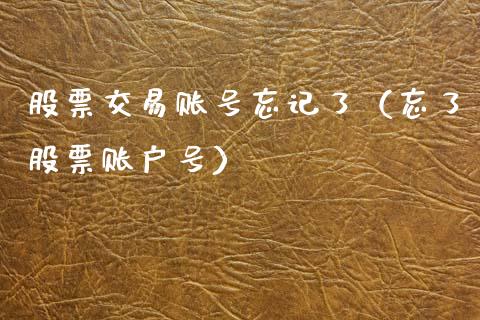 股票交易账号忘记了（忘了
股票账户号）